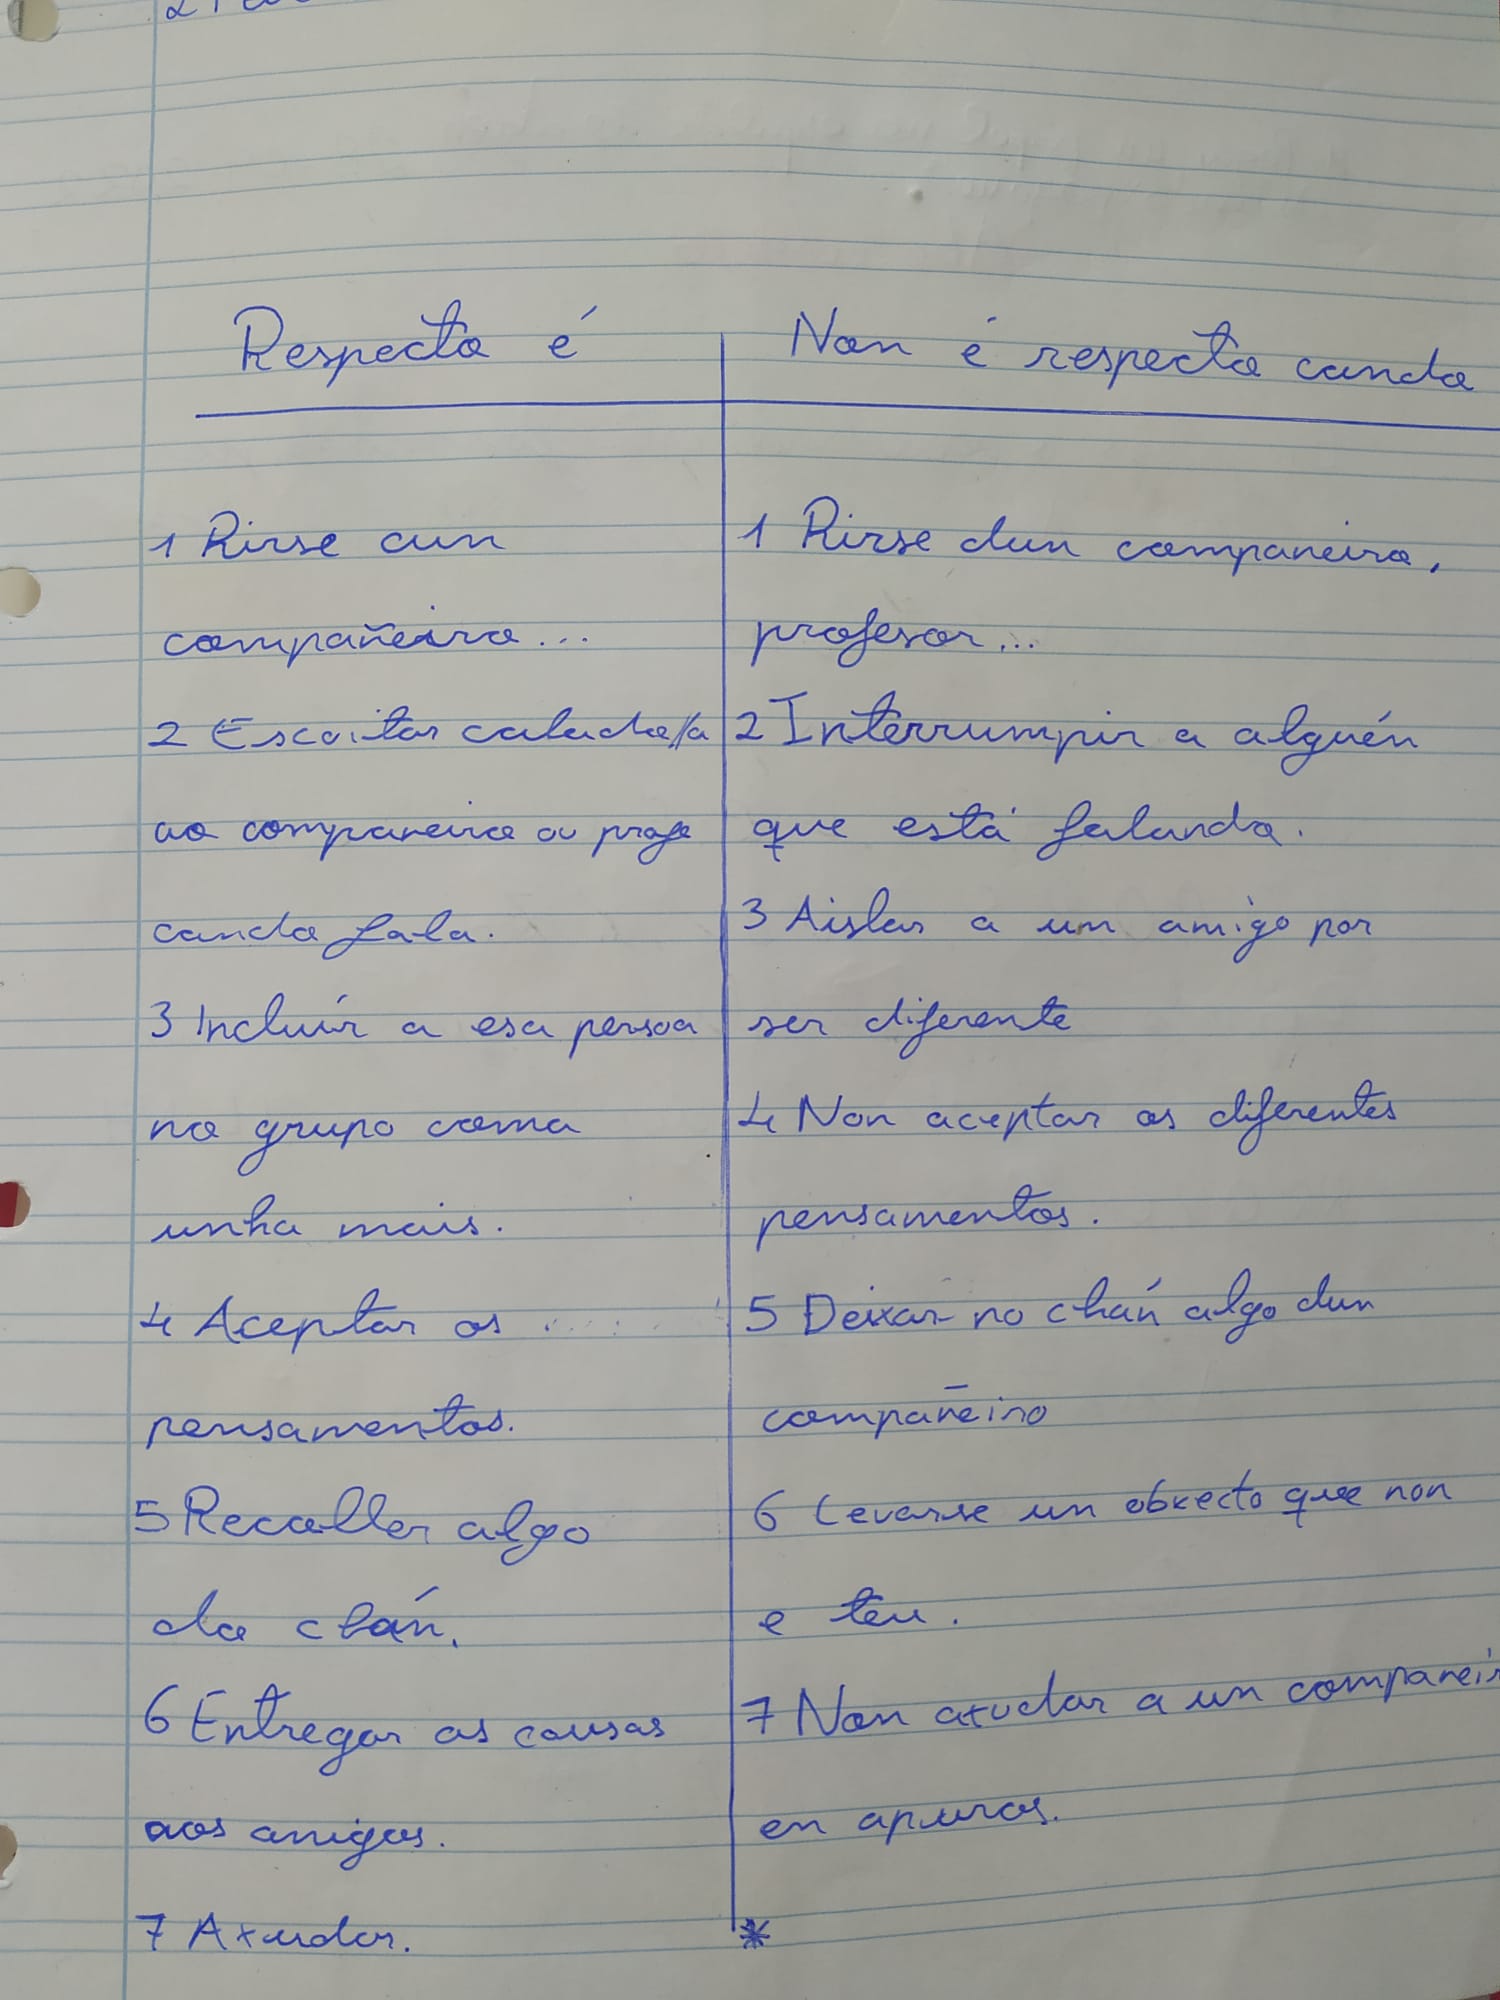 Respecto é
1 Rirse cun
compañeiro...
2 Escoitar calado/a
ao companeiro ou profe
cando fala.
3 Incluír a esa persoa
no grupo coma
unha mais.
4 Aceptar os .....
pensamentos.
5 Recoller algo
do chán.
6 Entregar as cousas
aos amigos.
7 Axudar.
Non é respecto cando
1 Rirse dun companeiro,
profesor...
2 Interrumpir a alguén
que está falando.
3 Aislar a un amigo por
ser diferente
4 Non aceptar os diferentes
pensamentos.
5 Deixar no chań algo dun
compañeiro
6 Levarse un obxecto que non
e teu.
7 Non axudar a un companeir
en apuros.
*